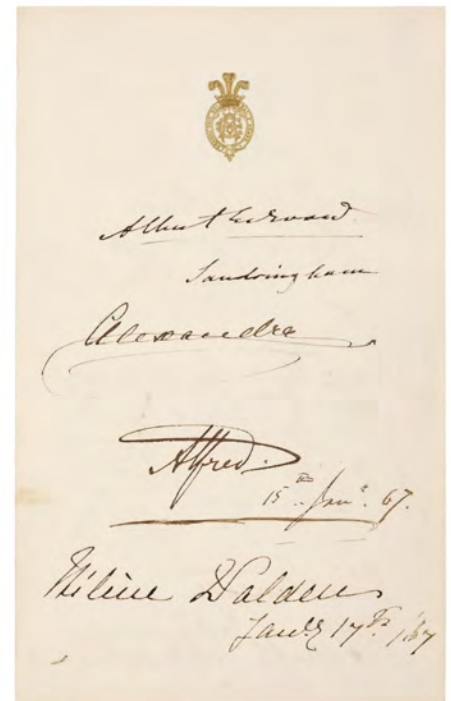 Albert Edward
Sandringham
Alexandra
Alfred.
15th Jany. 67.
Hélène
Jany 17th /67